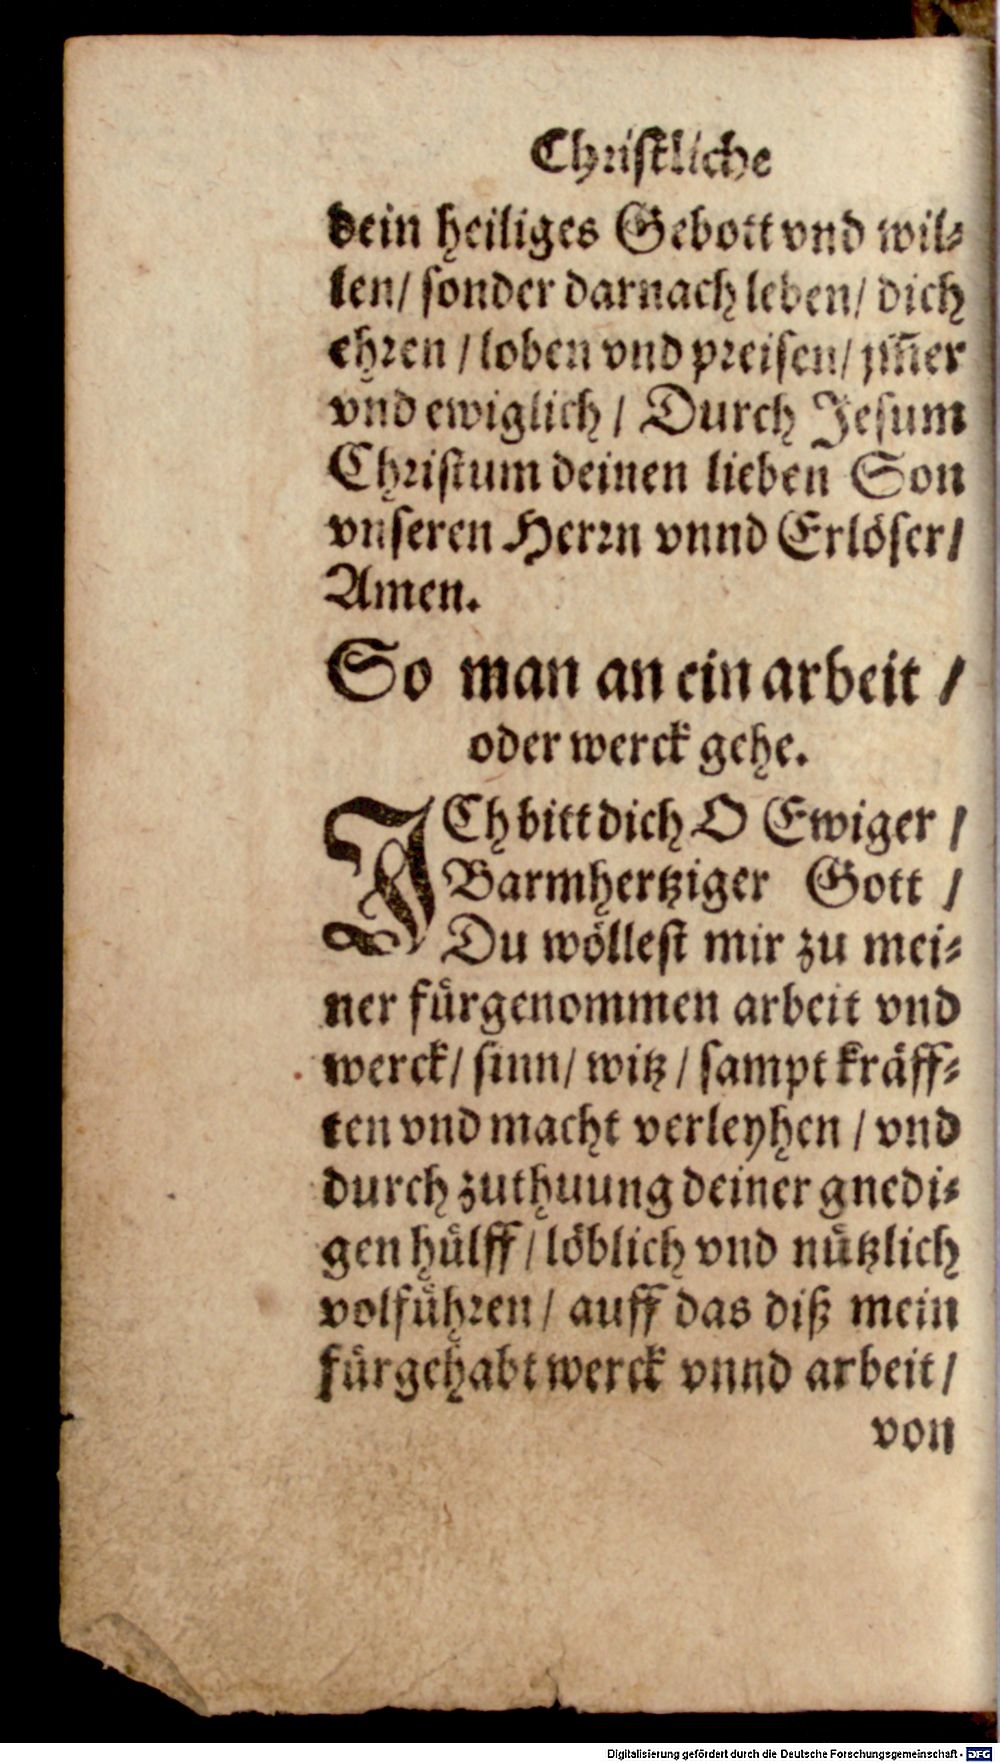 Christliche
dein heiliges Gebott vnd wil⸗
len/ sonder darnach leben/ dich
ehren / loben vnd preisen/ jm̃er
vnd ewiglich / Durch Jesum
Christum deinen lieben Son
vnseren Herrn vnnd Erlöser/
Amen.
So man an ein arbeit /
oder werck gehe.
ICh bitt dich O Ewiger /
Barmhertziger Gott /
Du wöllest mir zu mei⸗
ner fürgenommen arbeit vnd
werck/ sinn/ witz / sampt kräff⸗
ten vnd macht verleyhen / vnd
durch zuthuung deiner gnedi⸗
gen hülff / löblich vnd nützlich
volführen / auff das diß mein
fürgehabt werck vnnd arbeit/
von
Digitalisierung gefördert durch die Deutsche Forschungsgemeinschaft - DFG